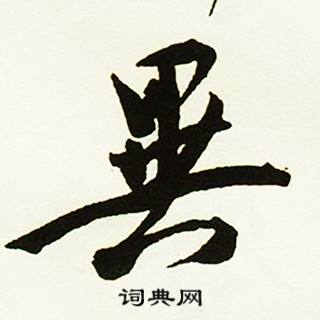 異
词典网